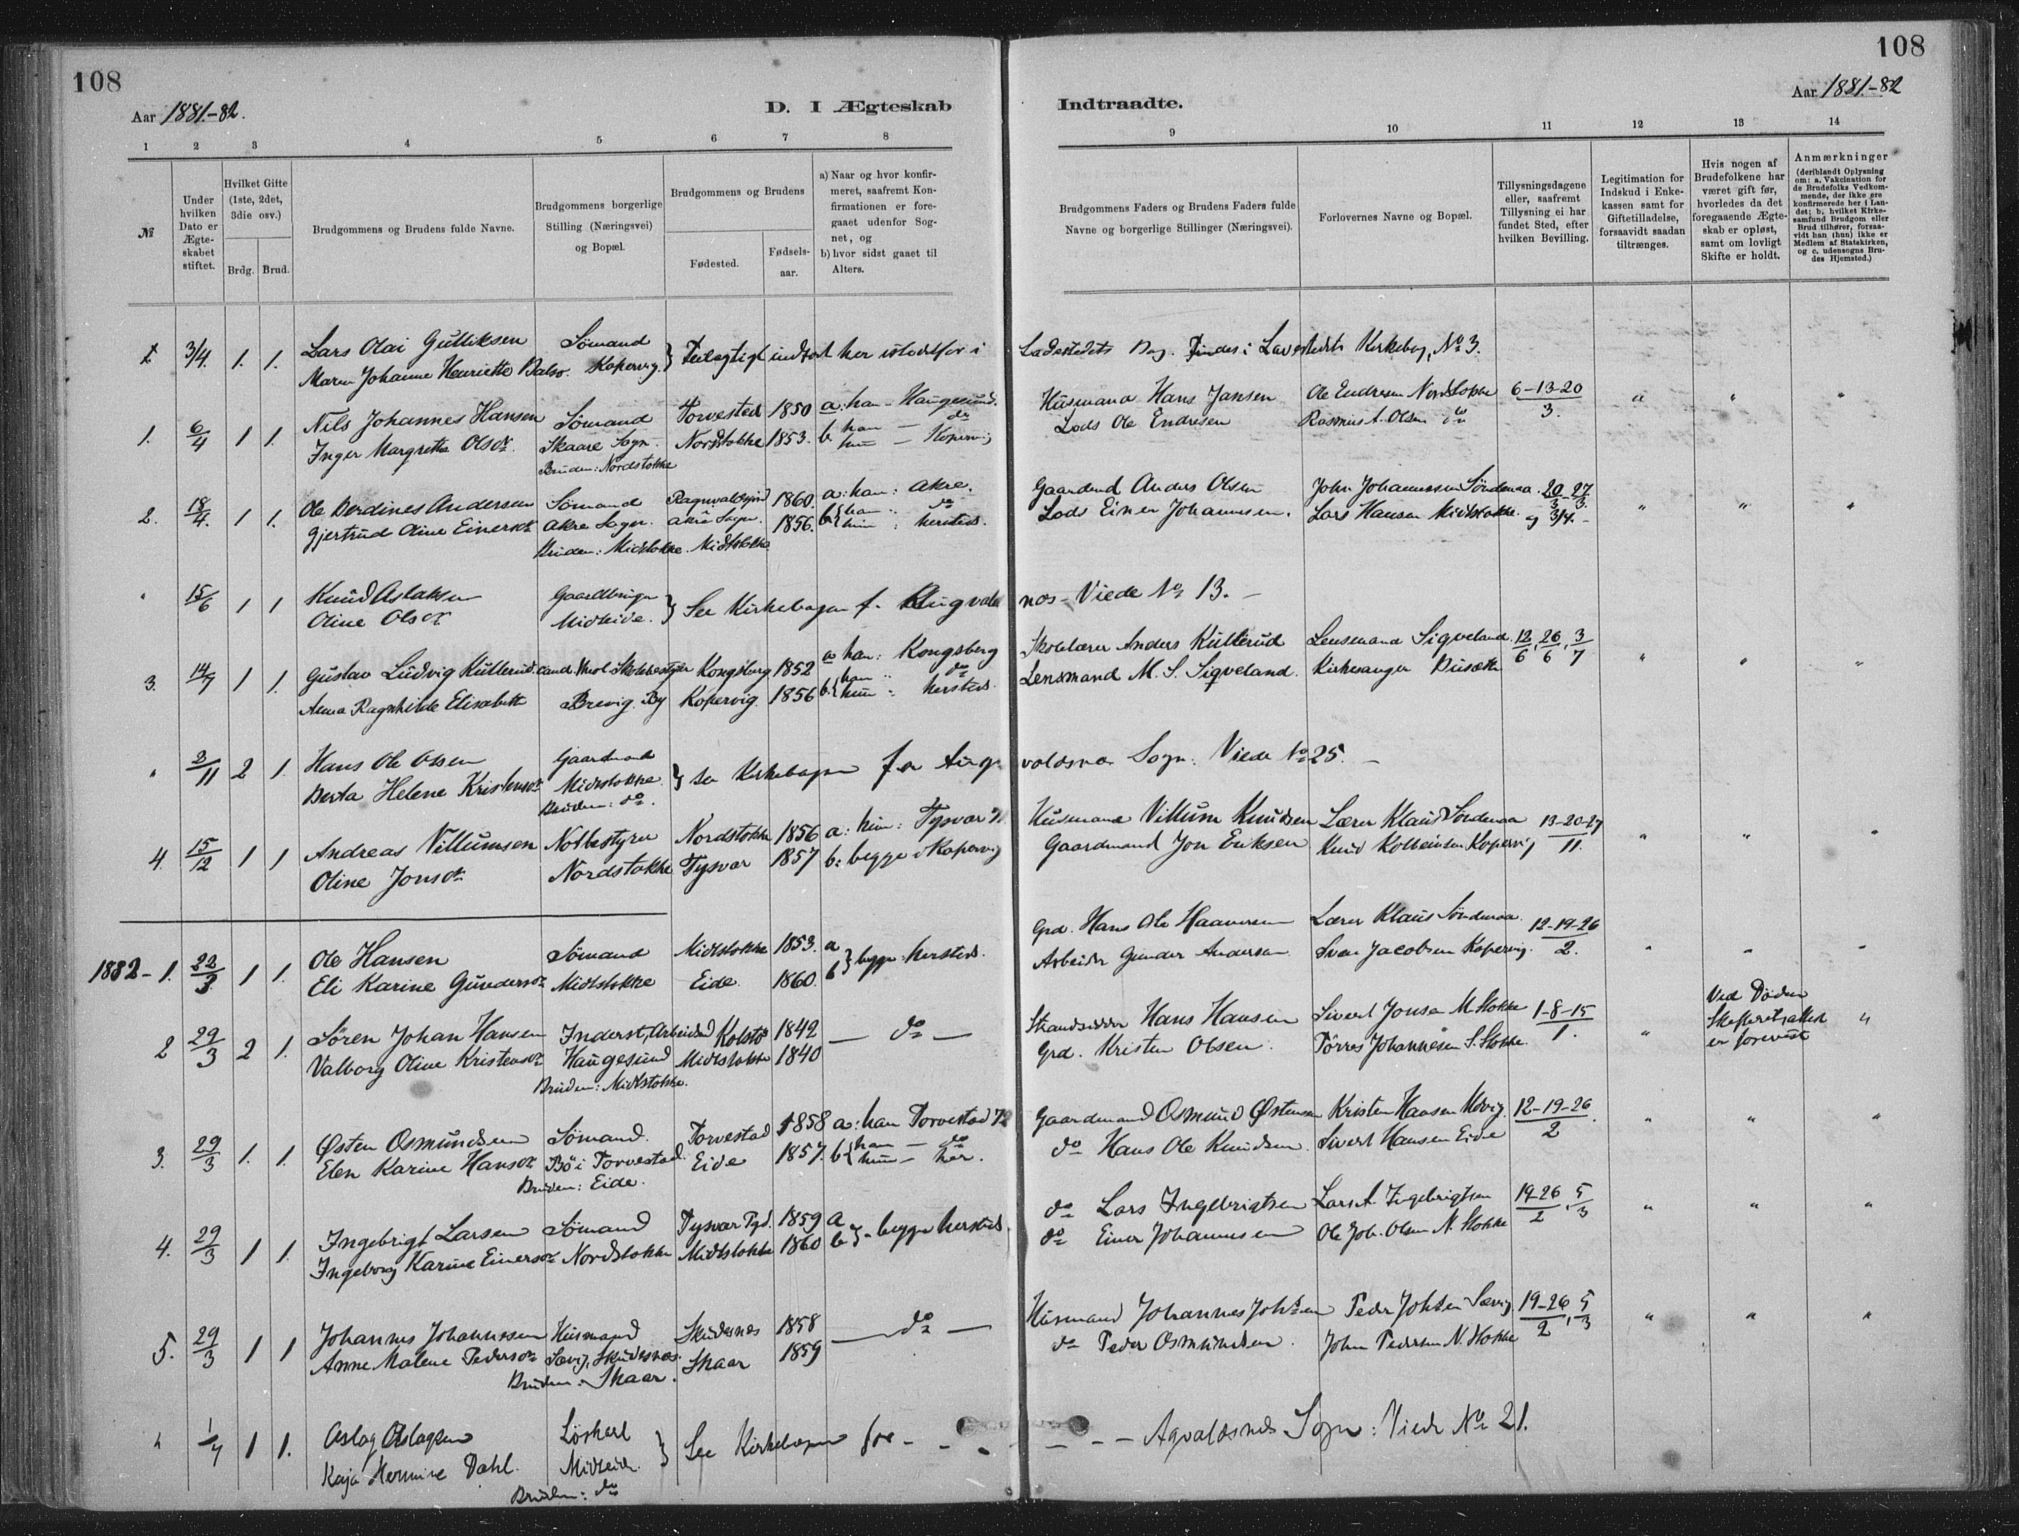 108
108
Aar 1881.-82.
D. I Ægteskab
Indtraadte.
Aar 1881.-82
1 2 3 4 5 6 7 8 9 10 11 12 13 14
№
Under hvilken Dato er Ægteskabet stiftet.
Hvilket Gifte (1ste, 2det, 3die osv.)
Brdg. Brud.
Brudgommens og Brudens fulde Navne.
Brudgommens borgerlige Stilling (Næringsvei) og Bopæl.
Brudgommens og Brudens
Fødested.
Fødselsaar.
a) Naar og hvor konfirmeret, saafremt Konfirmationen er foregaaet udenfor Sognet, og
b) hvor sidst gaaet til Alters.
Brudgommens Faders og Brudens Faders fulde Navne og borgerlige Stillinger (Næringsvei).
Forlovernes Navne og Bopæl.
Tillysningsdagene eller, saafremt Tillysning ei har fundet Sted, efter hvilken Bevilling.
Legitimation for Indskud i Enkekassen samt for Giftetilladelse, forsaavidt saadan tiltrænges.
Hvis nogen af Brudefolkene har været gift før, hvorledes da det foregaaende Ægteskab er opløst, samt om lovligt Skifte er holdt.
Anmærkninger (deriblandt Oplysning om: a. Vakcination for de Brudefolks Vedkommende, der ikke ere konfirmerede her i Landet; b. hvilket Kirkesamfund Brudgom eller Brud tilhører, forsaavidt han (hun) ikke er Medlem af Statskirken, og c. udensogns Brudes Hjemsted.)
3/4. 1. 1. Lars Olai Gulliksen Sømand } Feilagtigt indført her istedetfor i Ladestedets Bog. Findes i Ladestedets Kirkebog, No 3.
Maren Johanne Henriette Kopervig
1. 6/4 1 1. Nils Johannes Hansen Sømand Torvestad 1850 a: han - Haugesund. Husmand Hans Jansen Ole Endresen Nordstokke 6-13-20/3. " " "
Inger Margrethe Olsdtr. Skaare Sogn. Nordstokke 1853. b han — do hun — Kopervig Lods Ole Endresen Rasmus A. Olsen do
Bruden: Nordstokke
2. 18/4. 1 1. Ole Berdines Andersen Sømand 1860. a: han: Akre. Gaardmd Anders Olsen John Johannessen Søndenaa. 20-27/3 3. " " "
Gjertrud Oline Einersdtr Akre Sogn. Akre Sogn. 1856. b { han " do hun : hersteds. Lods Einer Johannesen. Lars Hansen Midtstokke. og 3/4.
Bruden: Midtstokke. Midtstokke
" 15/6 1 1 Knud Aslaksen Gaardbruger } See Kirkebogen f. Augvaldsnes - Viede No 13. —
Oline Olsdtr Midteide.
3. 14/7 1 1. Gustav Ludvig Kullerud. cand. theol. Skolebestyrer Kongsberg 1852 a han: Kongsberg Skolelærer Anders Kullerud Lensmand Sigveland 12/6, 26/6, 3/7 " " "
Anna Ragnhilde Elisabeth Brevig By Kopervig 1856 b. { han " do hun " hersteds. Lensmand M. S. Sigveland. Kirkesanger
" 3/11 2 1. Hans Ole Olsen Gaardmand } se Kirkebogen for Augvaldsnes Sogn. Viede No 25. —
Berta Helene Kristensdtr Midtstokke.
Bruden: do.
4. 15/12 1 1 Andreas Villumsen Notbestyrer Nordstokke 1856 a: hun: Tysvær Husmand Villum Knudsen Lærer Klaus Søndenaa 13-20-27/11. " " "
Oline Jonsdtr Nordstokke Tysvær 1857 b: begge i Kopervig Gaardmand Jon Eriksen Knud Kolbeinsen Kopervig
1882 - 1. 22/3 1 1. Ole Hansen Sømand Midtstokke 1853. a } begge hersteds. Grd. Hans Ole Haavresen Lærer Klaus Søndenaa. 12-19-26/2. " " "
Eli Karine Gundersdtr Midtstokke Eide. 1860. b Arbeider Gunder Andersen Sven Jacobsen Kopervig.
2 29/3 2 1. Søren Johan Hansen Inderst, Arbeidsmd Kolstø 1842 — do — Strandsidder Hans Hansen Sivert Jonsen M. Stokke 1-8-15/1. " Ved Døden Skifteretsattest er forevist "
Valborg Oline Kristensdtr Haugesund Midtstokke 1840 Grd. Kristen Olsen. Tørres Johannesen S. Stokke.
Bruden: Midtstokke.
3. 29/3 1. 1. Østen Osmundsen Sømand. Torvestad 1858 a: han Torvestad 72 Gaardmand Osmund Østensen Kristen Hansen 12-19-26/2. " " "
Elen Karine Hansdtr Bø i Torvestad. Eide 1857. b { han — do hun — her. do Hans Ole Knudsen Sivert Hansen Eide
Bruden: Eide.
4. 29/3 1 1. Ingebrigt Larsen Sømand Tysvær Pgd. 1859 a } - begge hersteds. do Lars Ingebrigtsen Lars A. Ingebrigtsen 19-26/2, 5/3 " " "
Ingeborg Karine Einersdtr Nordstokke Midtstokke 1860 b do Einer Johannesen Ole Joh. Olsen N. Stokke
5. 29/3 1 1 Johannes Johannessen Husmand Skudesnes 1858 — do — Husmand Johannes Johnsen Peder Johnsen Sævig 19-26/2, 5/3 " " "
Anne Malene Pedersdtr Sævig, Skudesnes. Skaar 1859 do Peder Osmundsen. John Pedersen N. Stokke
Bruden: Skaar.
" 1/7 1 1. Aslag Aslagsen Løskarl } See Kirkebogen for — — — Agvaldsnes Sogn: Viede No 21.
Kaja Hermine Dahl. Midteide.
Bruden: do